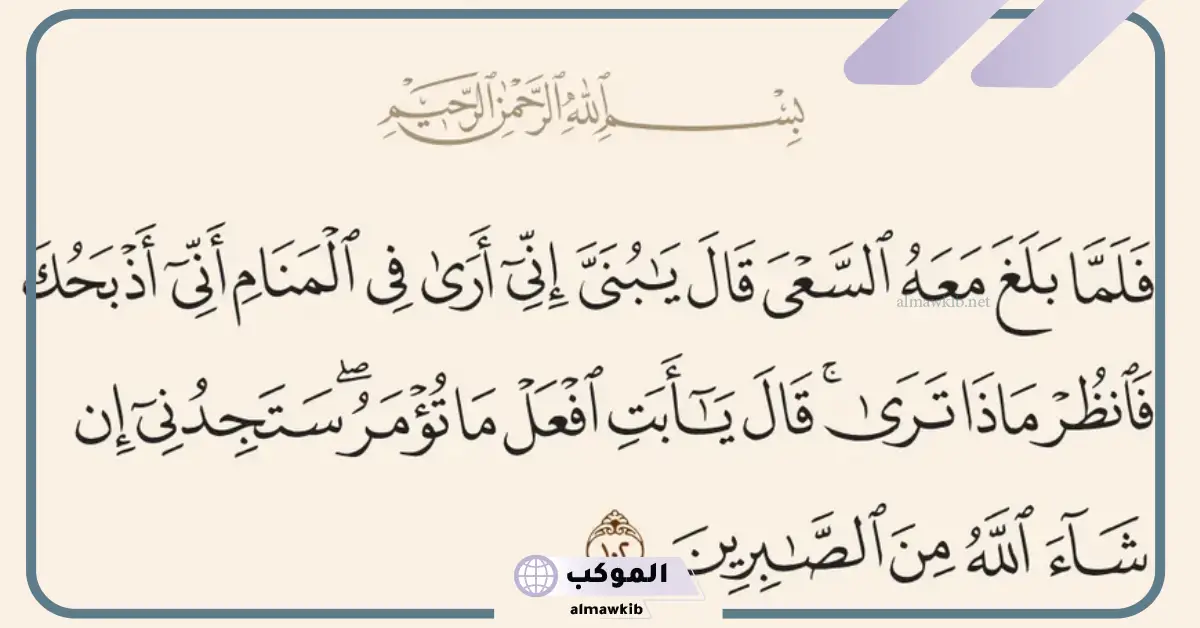 بِسْمِ اللَّهِ الرَّحْمَٰنِ الرَّحِيمِ
فَلَمَّا بَلَغَ مَعَهُ ٱلسَّعْىَ قَالَ يَٰبُنَىَّ إِنِّىٓ أَرَىٰ فِى ٱلْمَنَامِ أَنِّىٓ أَذْبَحُكَ
almawkib.net
فَٱنظُرْ مَاذَا تَرَىٰ ۚ قَالَ يَٰٓأَبَتِ ٱفْعَلْ مَا تُؤْمَرُ ۖ سَتَجِدُنِىٓ إِن
شَآءَ ٱللَّهُ مِنَ ٱلصَّٰبِرِينَ ١٠٢
الموكب
almawkib